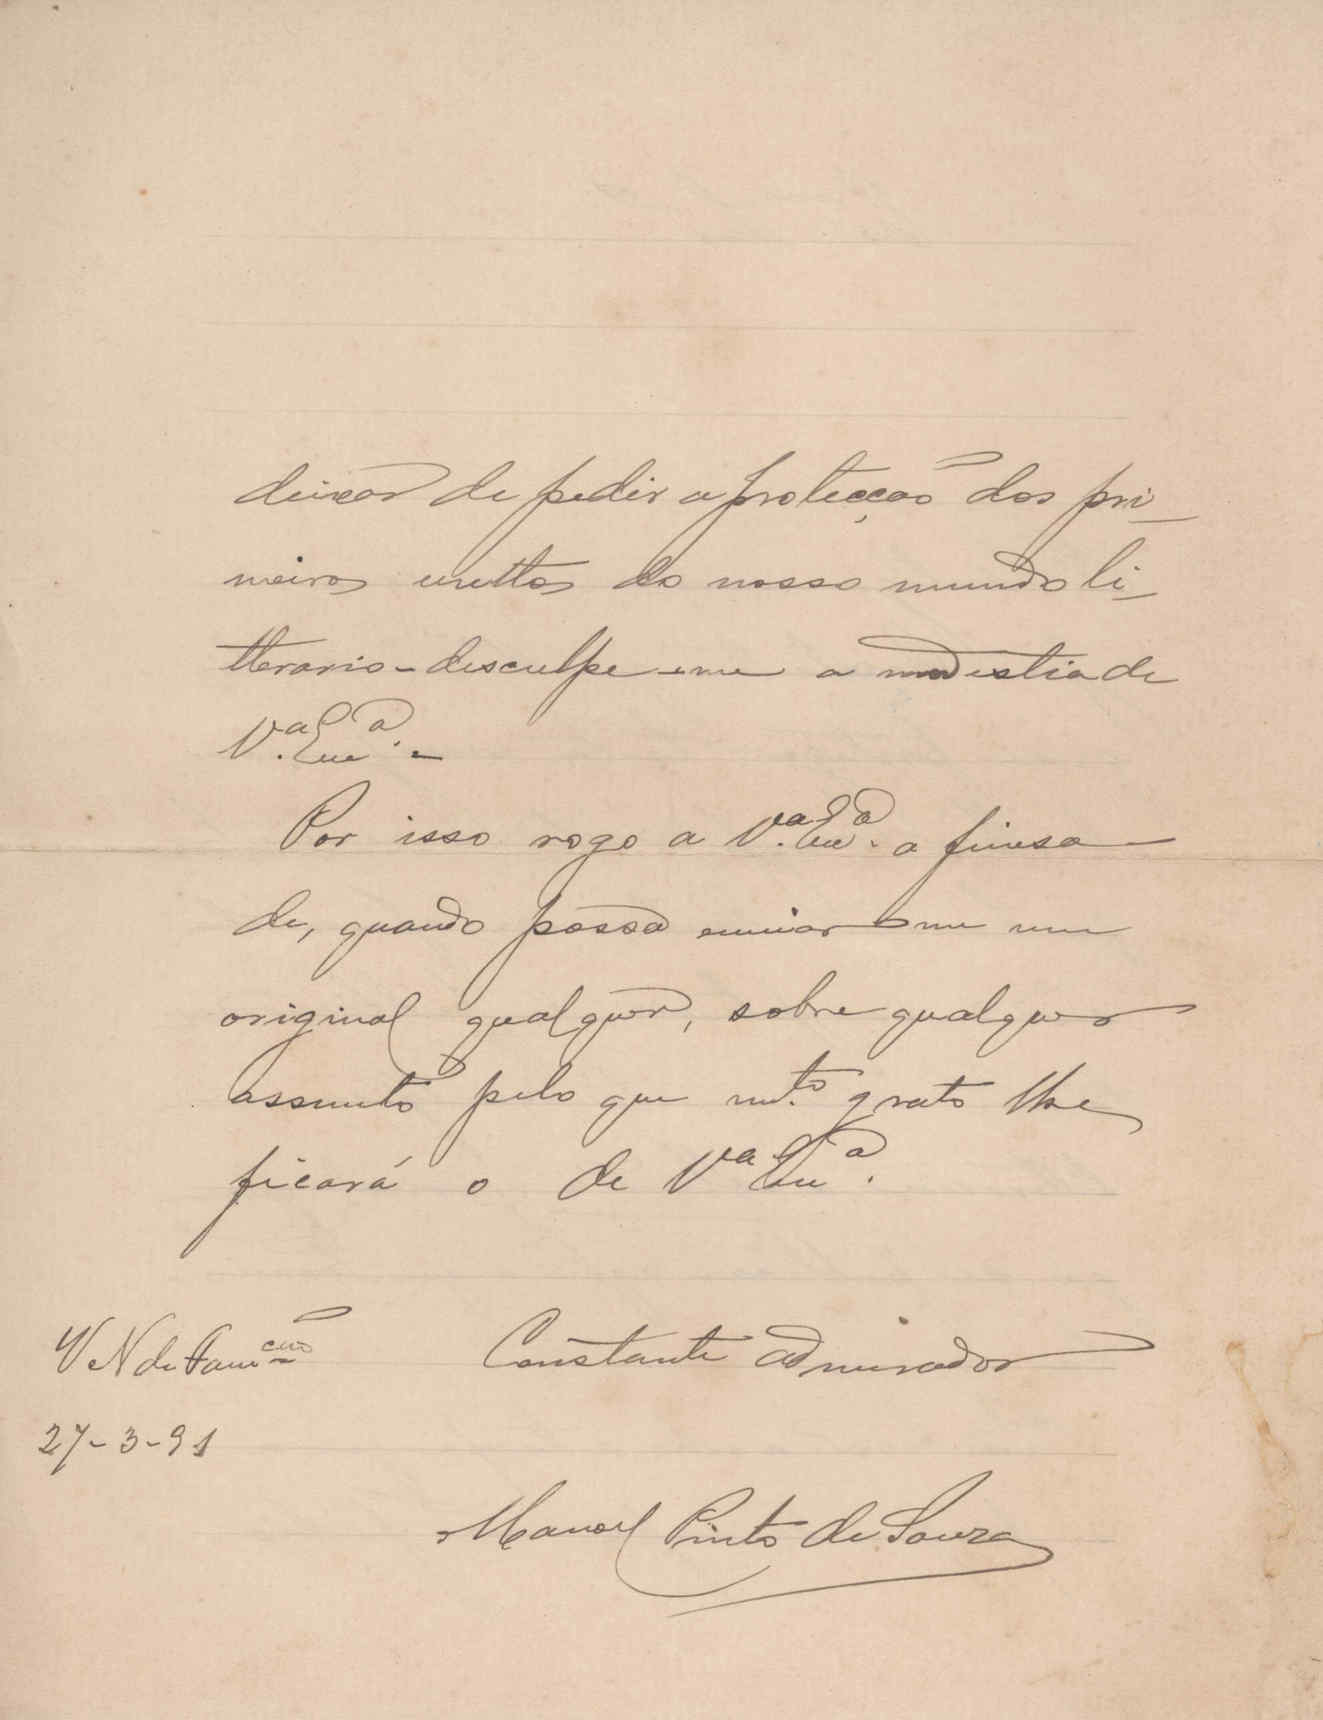 deixar de pedir a protecção dos pri-
meiros vultos do nosso mundo li-
tterario - desculpe-me a modestia de
V.ª Ex.ª -
Por isso rogo a V.ª Ex.ª a finesa
de, quando possa enviar-me um
original qualquer, sobre qualquer
assumto pelo que mt.º grato lhe
ficará o de Vª Exª.
V N de Fam.cão Constante admirador
27-3-91
Manoel Pinto de Souza